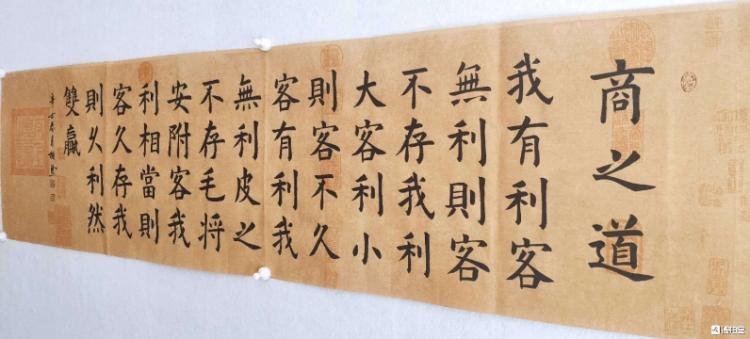 商之道
我有利客
無利則客
不存我利
大客利小
則客不久
客有利我
無利皮之
不存毛将
安附客我
利相當則
客久存我
則久利然
雙贏